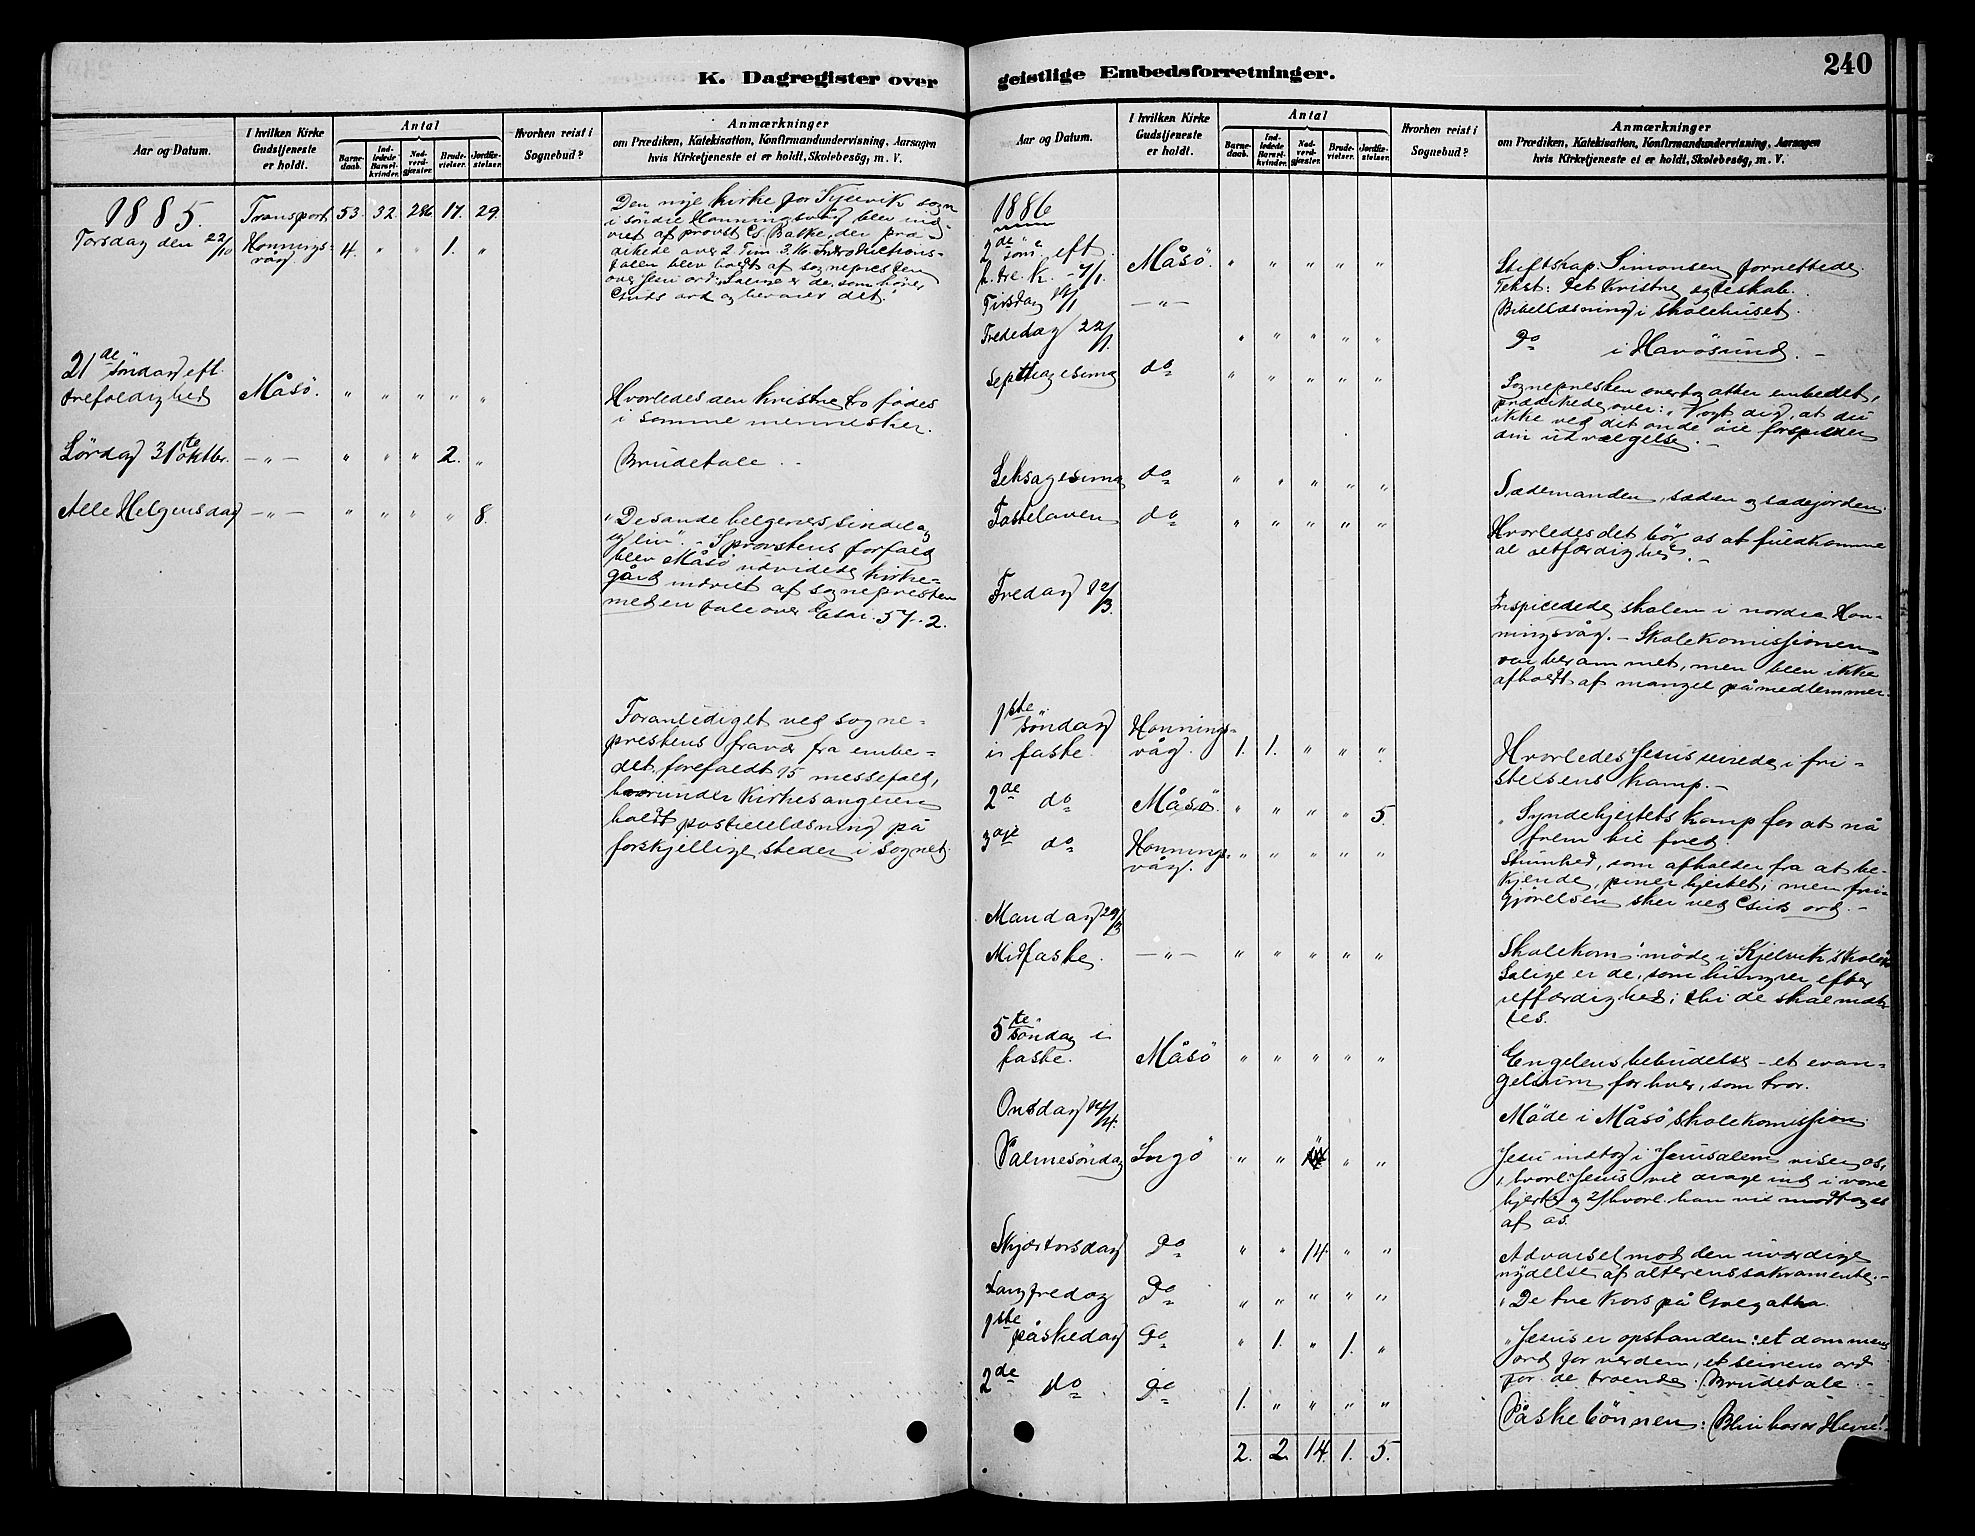 K. Dagregister over
Aar og Datum.
I hvilken Kirke Gudstjeneste er holdt.
Antal
Barne-daab.
Ind-ledede Barsel-kvinder.
Nad-verd-gjæster.
Brude-vielser.
Jordfæ-stelser.
Hvorhen reist i Sognebud?
Anmærkninger
om Prædiken, Katekisation, Konfirmandundervisning, Aarsagen
hvis Kirketjeneste et er holdt, Skolebesög, m. V.
1885. Transport 53. 32. 286 17. 29.
Torsdag den 22/10 Honnings-våg 4. " " 1. "
Den nye kirke for Kjelvik sogn
i söndre Honningsvåg blev ind-
viet af provst Balke, der præ-
dikede over 2 Tim. 3,16. Introductions-
talen blev holdt af sognepresten
over Jesu ord: Salige er de, som hører
Guds ord og bevarer det.
21de söndag eft.
trefoldighed Måsö. " " " " "
Hvorledes den kristne tro födes
i somme mennesker.
Lördag 31te oktbr. —„— " " " 2. "
Brudetale.
Alle Helgensdag —„— " " " " 8.
"De sande helgenes sindelag
og liv". - I provstens forfald
blev Måsö udvidede kirke-
gård indviet af sognepresten
med en tale over Esai. 57. 2.
Foranlediget ved sogne-
prestens fravær fra embe-
det forefaldt 15 messefald,
hvorunder kirkesangeren
holdt postillelæsning på
forskjellige steder i sognet.
geistlige Embedsforretninger.
240
Aar og Datum.
I hvilken Kirke Gudstjeneste er holdt.
Antal
Barne-daab.
Ind-ledede Barsel-kvinder.
Nad-verd-gjæster.
Brude-vielser.
Jordfæ-stelser.
Hvorhen reist i Sognebud?
Anmærkninger
om Prædiken, Katekisation, Konfirmandundervisning, Aarsagen
hvis Kirketjeneste et er holdt, Skolebesög, m. V.
1886
2de sönd. eft.
h. tre k. Måsö. " " " " "
Stiftskap. Simonsen forrettede.
Tekst: Det kristne egteskab.
Tirsdag 19/1 —„—
Bibellæsning i skolehuset.
Fredag 22/1. " " " " "
Do i Havösund. -
Septuagesima do " " " " "
Sognepresten overtog atter embedet,
prædikede over: Vogt dig, at du
ikke ved dit onde öie forspilder
din udvælgelse. -
Seksagesima do " " " " "
Sædemanden, sæden og sædejorden.
Fastelaven do " " " " "
Hvorledes det bör os at fuldkomme
al retfærdighed. -
Fredag 12/3.
Inspicerede skolen i nordre Hon-
ningsvåg. - Skolekomissionen
var berammet, men blev ikke
afholdt af mangel på medlemmer.
1ste söndag
i faste. Honnings-våg. 1. 1. " " "
Hvorledes Jesus seirede i fri-
stelsens kamp. -
2de do Måsö. " " " " 5.
"Syndehjertets kamp for at nå
frem til fred.
3die do Honnings-våg. " " " " "
Stumhed, som afholder fra at be-
kjende, piner hjertet; men fri-
gjörelsen sker ved Guds ord. -
Mandag 29/3
Skolekom. möde i Kjelvik skole.
Midfaste. —„— " " " " "
Salige er de, som hungrer efter
retfærdighed; thi de skal mæt-
tes.
5te söndag i
faste. Måsö " " " " "
Engelens bebudelse - et evan-
gelium for hver, som tror.
Onsdag 14/4.
Möde i Måsö skolekomission.
Palmesöndag Ingö " " " " "
Jesu indtog i Jerusalem viser os,
1, hvorl. Jesus vil drage ind i vore
hjerter og 2, hvorl. han vil modtages
af os.
Skjærtorsdag Do " " 14. " "
Advarsel mod den uværdige
nydelse af alterens sakramente. -
Langfredag Do " " " " "
De tre kors på Golgatha.
1ste påskedag Do " 1. " 1. "
"Jesus er opstanden: et dommens
ord for verden, et seirens ord
for de troende. Brudetale. -
2de do Do 1. " " " "
Påskebönnen: Bliv hos os Herre!
2. 2. 14. 1. 5.